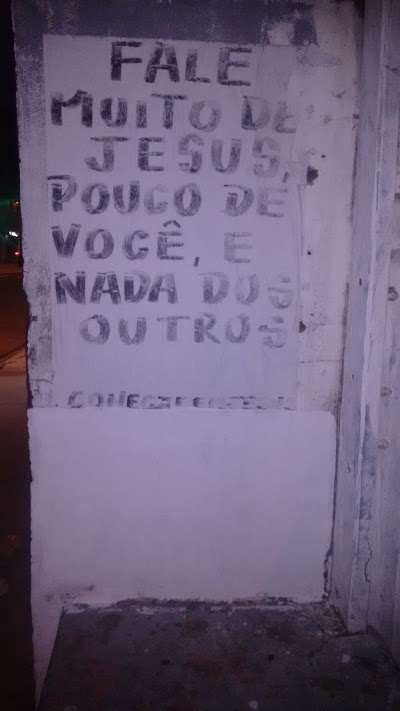 FALE
MUITO DE
JESUS,
POUCO DE
VOCÊ, E
NADA DOS
OUTROS